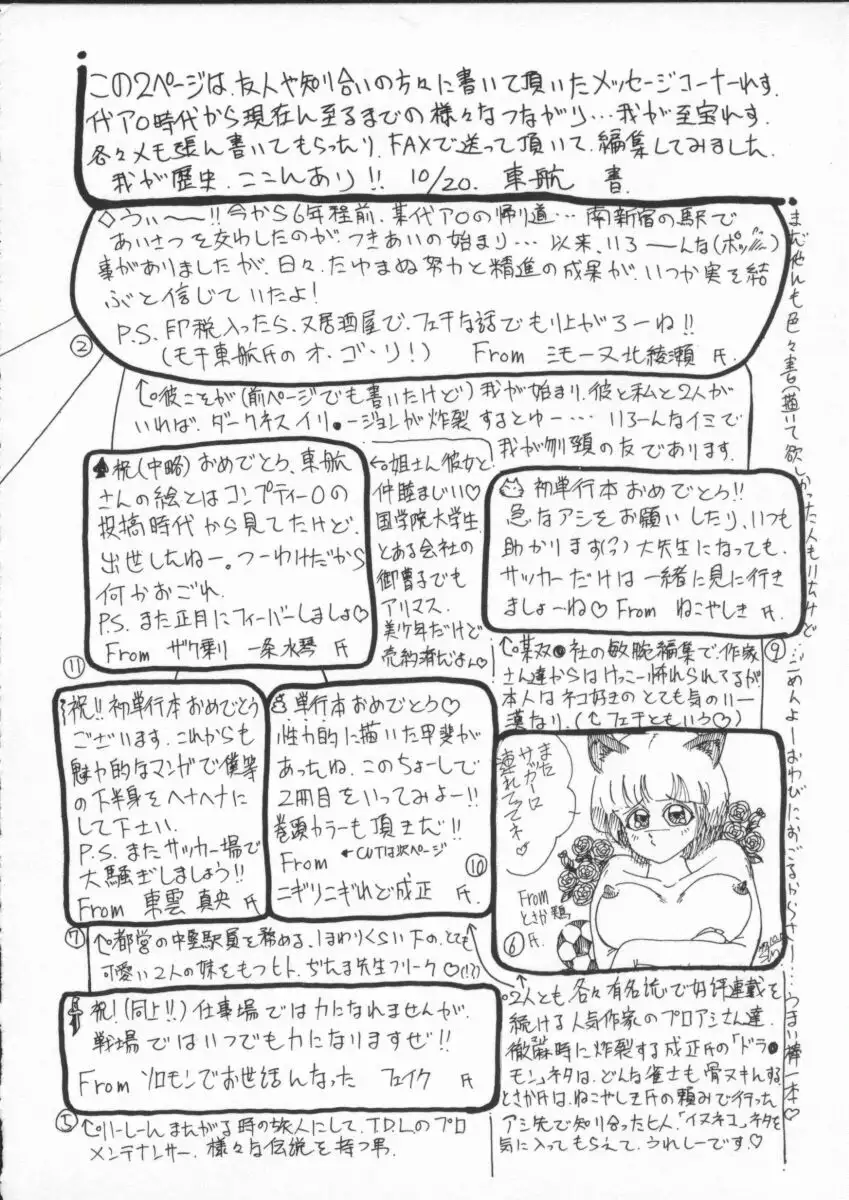 この2ページは、友人や知り合いの方々に書いて頂いたメッセージコーナーれす.
代アO時代から現在ん至るまでの様々なつながり…我が至宝れす.
各々メモ張ん書いてもらったり、FAXで送って頂いて、編集してみました.
我が歴史、ここんあり!! 10/20. 東航 書.
◇うぃ〜〜!! 今から6年程前、某代アOの帰り道… 南新宿の駅で
あいさつを交わしたのが、つきあいの始まり… 以来、いろ〜〜んな(ポッ)
事がありましたが、日々、たゆまぬ努力と精進の成果が、いつか実を結
ぶと信じていたよ!
P.S. 印税入ったら、又居酒屋で、フェチな話でもり上がろーね!!
(モチ東航氏のオ・ゴ・リ!) From ミモーヌ北綾瀬 氏.
②
↑○彼こそが(前ページでも書いたけど)我が始まり、彼と私と2人が
いれば、ダークネスイリ●ージョンが炸裂するとゆー… いろーんなイミで
我が刎頸の友であります.
♠祝(中略)おめでとう、東航
さんの絵とはコンプティーOの
投稿時代から見てたけど、
出世したねー。つーわけだから
何かおごれ.
P.S. また正月にフィーバーしましょ♡
From ザク乗り 一条水琴 氏
⑪
←○姐さん彼女と
仲睦まじい♡
国学院大学生.
とある会社の
御曹子でも
アリマス.
美少年だけど
売約済だよん♡
初単行本おめでとう!!
急なアシをお願いしたり、いつも
助かります(?)大先生になっても、
サッカーだけは一緒に見に行き
ましょーね♡ From ねこやしき 氏.
⑨
↑○某双●社の敏腕編集で、作家
さん達からはけっこー怖れられてるが
本人はネコ好きのとても気のいい
漢なり.(↑フェチともいう♡)
祝!! 初単行本おめでとう
ございます. これからも
魅力的なマンガで僕等
の下半身をヘナヘナに
して下さい.
P.S. またサッカー場で
大騒ぎしましょう!!
From 東雲 真央 氏
⑦
単行本おめでとう♡
性力的に描いた甲斐が
あったね. このちょーしで
2冊目をいってみよー!!
巻頭カラーも頂きだ!!
From ←CUTは次ページ
⑩
ニギリニギれど成正 氏.
また
サガーロ
連れてってネ♡
From
とさか鶏
⑥ 氏.
↑○都営の中堅駅員を務める、1まわりくらい下の、とても
可愛い2人の妹をもつヒト. ぢたま先生フリーク♡(!?)
祝!(同上!!)仕事場では力になれませんが、
戦場ではいつでも力になりますぜ!!
From ソロモンでお世話んなった フェイク 氏
⑤
時の旅人にして、T.D.L.のプロ
メンテナンサー. 様々な伝説を持つ男.
○2人とも、各々有名誌で好評連載を
続ける人気作家のプロアシさん達.
徹麻時に炸裂する成正氏の「ドラ●
モン」ネタは、どんな雀士も骨ヌキんする.
とさか氏は、ねこやしき氏の頼みで行った
アシ先で知り合ったヒト.「イヌネコ」ネタを
気に入ってもらえて、うれしーです.♡
まだやんも色々書(描)いて欲しかった人もいたけど…ごめんよーおわびにおごるからさー… うまい棒一本♡